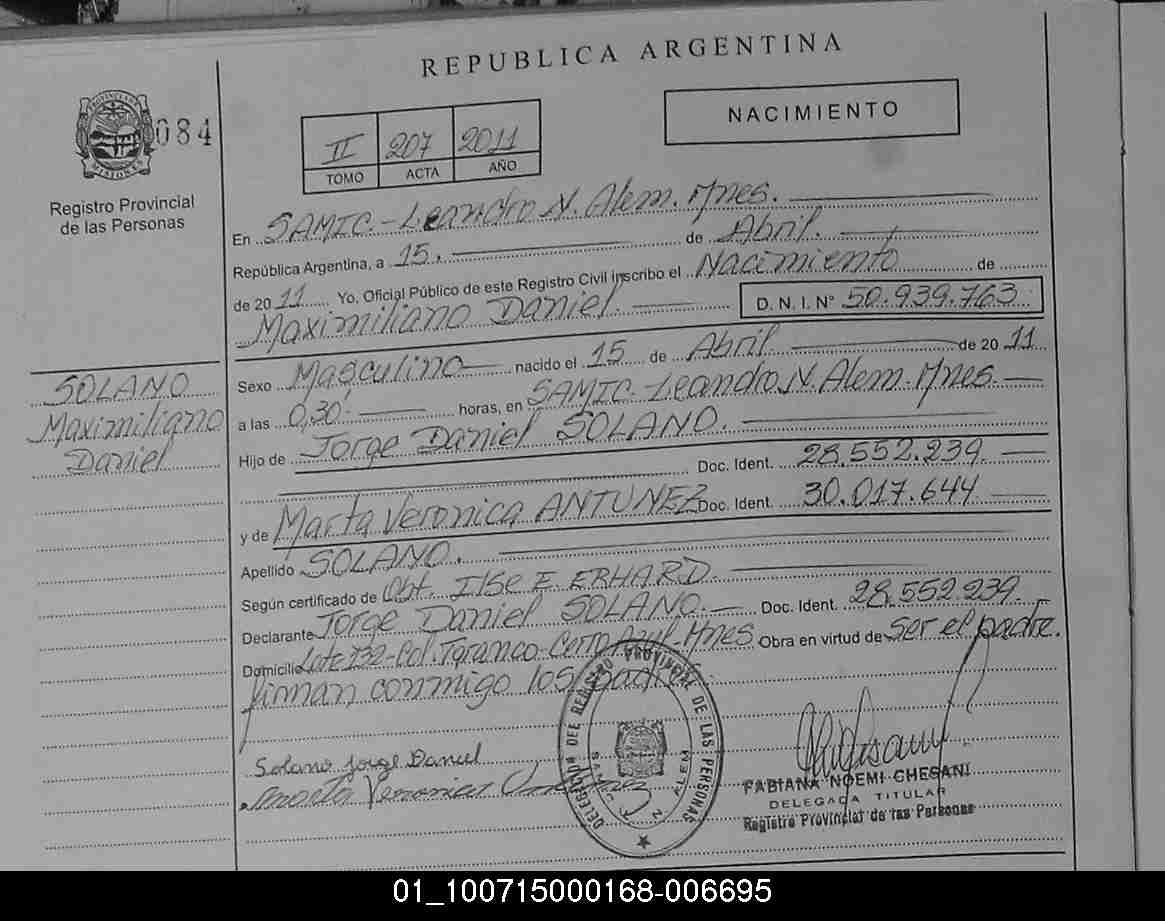 REPUBLICA ARGENTINA
PROVINCIA DE MISIONES
084
Registro Provincial
de las Personas
II 207 2011
TOMO ACTA AÑO
NACIMIENTO
En SAMIC.-Leandro N. Alem. Mnes.
República Argentina, a 15. de Abril.
de 2011 Yo, Oficial Público de este Registro Civil inscribo el Nacimiento de
Maximiliano Daniel. D. N. I. N° 50.939.763
Sexo Masculino nacido el 15 de Abril de 2011
a las 0,30' horas, en SAMIC. Leandro N. Alem. Mnes.
Hijo de Jorge Daniel SOLANO.
Doc. Ident. 28.552.239
y de Marta Veronica ANTUNEZ Doc. Ident. 30.017.644
Apellido SOLANO.
Según certificado de Obt. Ilse E. ERHARD.
Declarante Jorge Daniel SOLANO. Doc. Ident. 28.552.239
Domicilio Lote 132-Col. Taranco-Cerro Azul-Mnes Obra en virtud de ser el padre.
firman conmigo los padres
SOLANO
Maximiliano
Daniel
Solano Jorge Daniel
Marta Veronica
DELEGADA DEL REGISTRO PROVINCIAL DE LAS PERSONAS
N. ALEM
FABIANA NOEMI CHESANI
DELEGADA TITULAR
Registro Provincial de las Personas
01_100715000168-006695